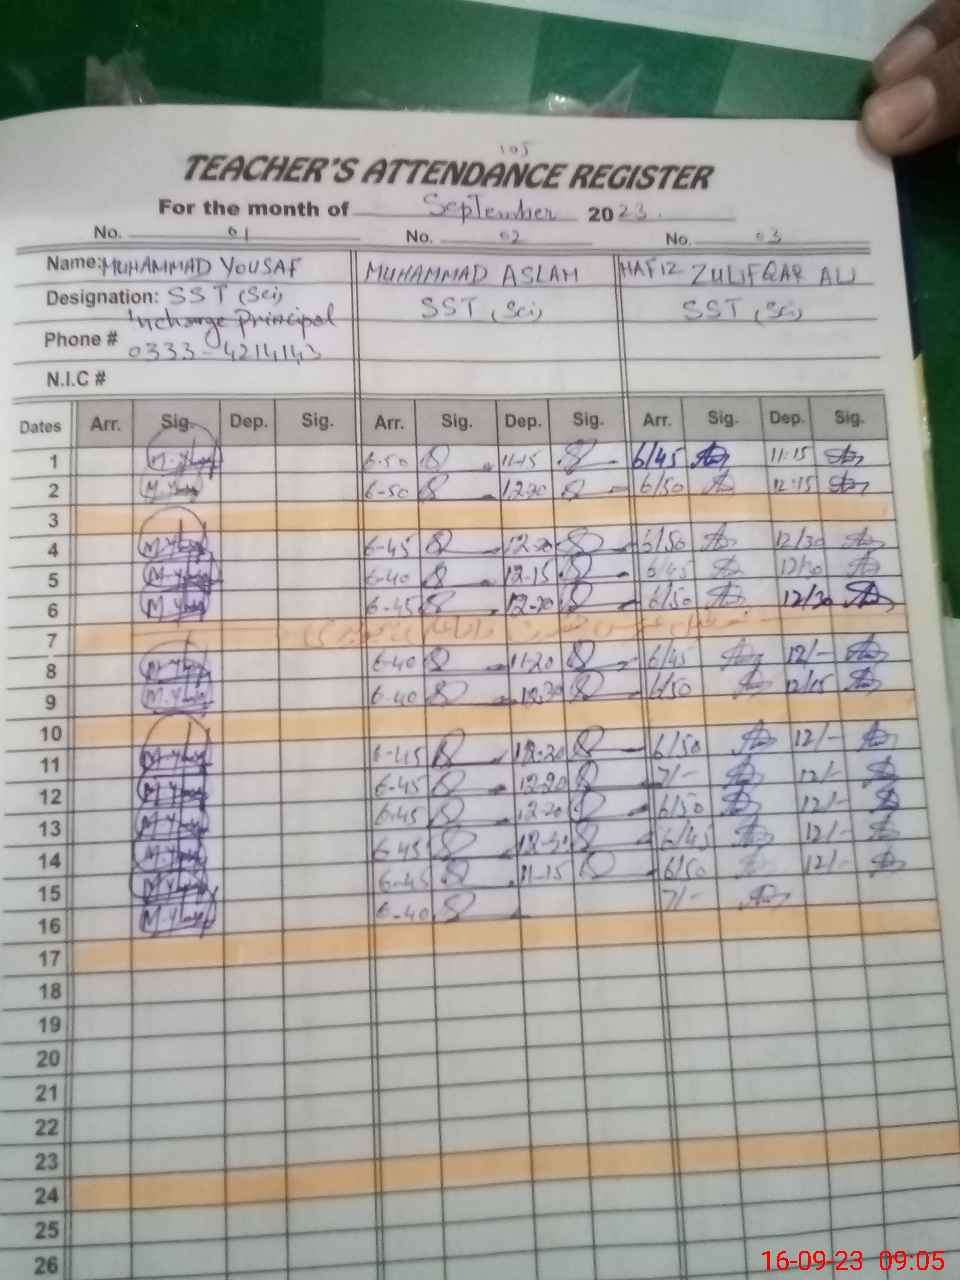 105
TEACHER'S ATTENDANCE REGISTER
For the month of September 2023.
No. 01 No. 02 No. 03
Name: MUHAMMAD YOUSAF MUHAMMAD ASLAM HAFIZ ZULIFQAR ALI
Designation: SST (Sci) SST (Sci) SST (Sci)
Incharge Principal
Phone # 0333-4214143
N.I.C #
Dates Arr. Sig. Dep. Sig. Arr. Sig. Dep. Sig. Arr. Sig. Dep. Sig.
1 6-50 11-15 6/45 11:15
2 6-50 12-20 6/50 12:15
3
4 6-45 12-20 6/50 12/30
5 6-40 12-15 6/45
6 6-45 12-20 6/50 12/30
7
8 6-40 11-20 6/45 12/-
9 6-40 12-30 6/50 12/15
10
11 6-45 12-20 6/50 12/-
12 6-45 12-20 7/- 12/-
13 6-45 12-20 6/50 12/-
14 6-45 6/45 12/-
15 6-45 11-15 6/50 12/-
16 6-40 7/-
17
18
19
20
21
22
23
24
25
26
16-09-23 09:05